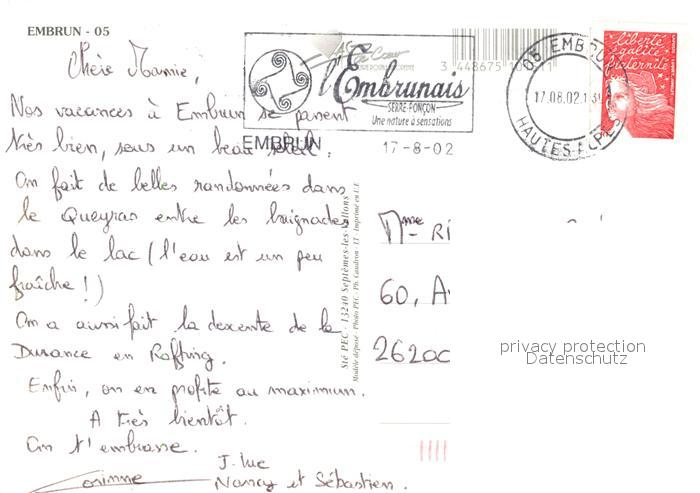 EMBRUN - 05
Chère Mamie,
Nos vacances à Embrun se passent
très bien, sous un beau soleil.
On fait de belles randonnées dans
le Queyras entre les baignades
dans le lac (l'eau est un peu
fraîche !)
On a aussi fait la descente de la
Durance en Rafting.
Enfin, on en profite au maximum.
A très bientôt.
On t'embrasse.
Corinne
J. Luc
Nancy et Sébastien.
l'Embrunais
SERRE-PONÇON
Une nature à sensations
EMBRUN
17-8-02
05 EMBRUN
17.08.02
HAUTES-ALPES
liberté
égalité
fraternité
3 448675
Sté PEC - 13240 Septèmes-les-Vallons
Modèle déposé - Photo PEC - Ph. Gaudron - IT - Imprimé en U.E
Mme RI
60, A
26200
privacy protection
Datenschutz